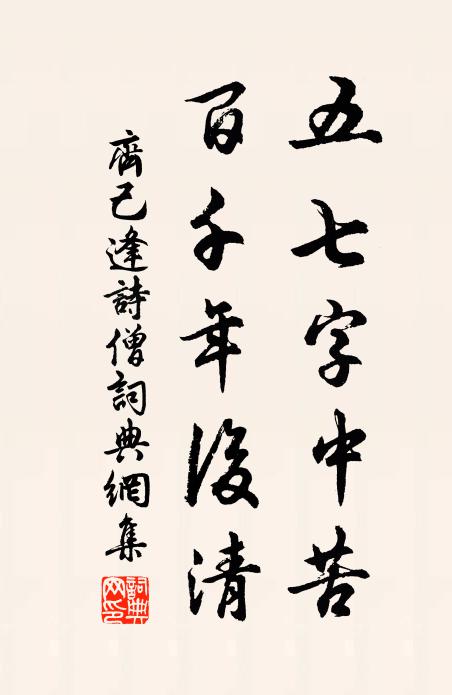 五七字中苦
百千年後清
齊己逢詩僧詞典網集
詞典網印